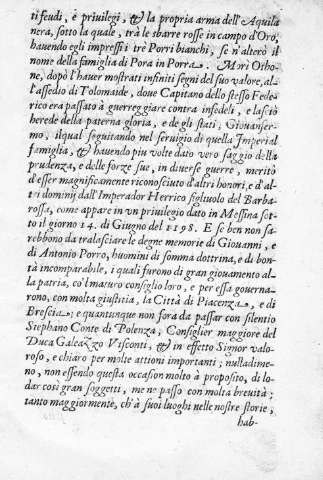 ti feudi, e priuilegi, & la propria arma dell'Aquila
nera, sotto la quale, trà le sbarre rosse in campo d'Oro,
hauendo egli impressi i tre Porri bianchi, se n'alterò il
nome della famiglia di Pora in Porra. Morì Otho-
ne, dopò l'hauer mostrati infiniti segni del suo valore, al-
l'assedio di Tolomaide, doue Capitano dello stesso Fede-
rico era passato à guerreggiare contra infedeli, e lasciò
herede della paterna gloria, e de gli stati, Giouanser-
mo, ilqual seguitando nel seruigio di quella Imperial
famiglia, & hauendo piu volte dato vero saggio della
prudenza, e delle forze sue, in diuerse guerre, meritò
d'esser magnificamente riconosciuto d'altri honori, e d'al-
tri dominij dall'Imperador Herrico figliuolo del Barba-
rossa, come appare in vn priuilegio dato in Messina sot-
to il giorno 14. di Giugno del 1198. E se ben non sa-
rebbono da tralasciare le degne memorie di Giouanni, e
di Antonio Porro, huomini di somma dottrina, e di bon-
tà incomparabile, i quali furono di gran giouamento al-
la patria, co'l maturo consiglio loro, e per essa gouerna-
rono, con molta giustitia, la Città di Piacenza, e di
Brescia; e quantunque non fora da passar con silentio
Stephano Conte di Polenza, Consiglier maggiore del
Duca Galeazzo Visconti, & in effetto Signor valo-
roso, e chiaro per molte attioni importanti; nulladime-
no, non essendo questa occasion molto à proposito, di lo-
dar così gran soggetti, me ne passo con molta breuità;
tanto maggiormente, ch'à suoi luoghi nelle nostre storie,
hab-